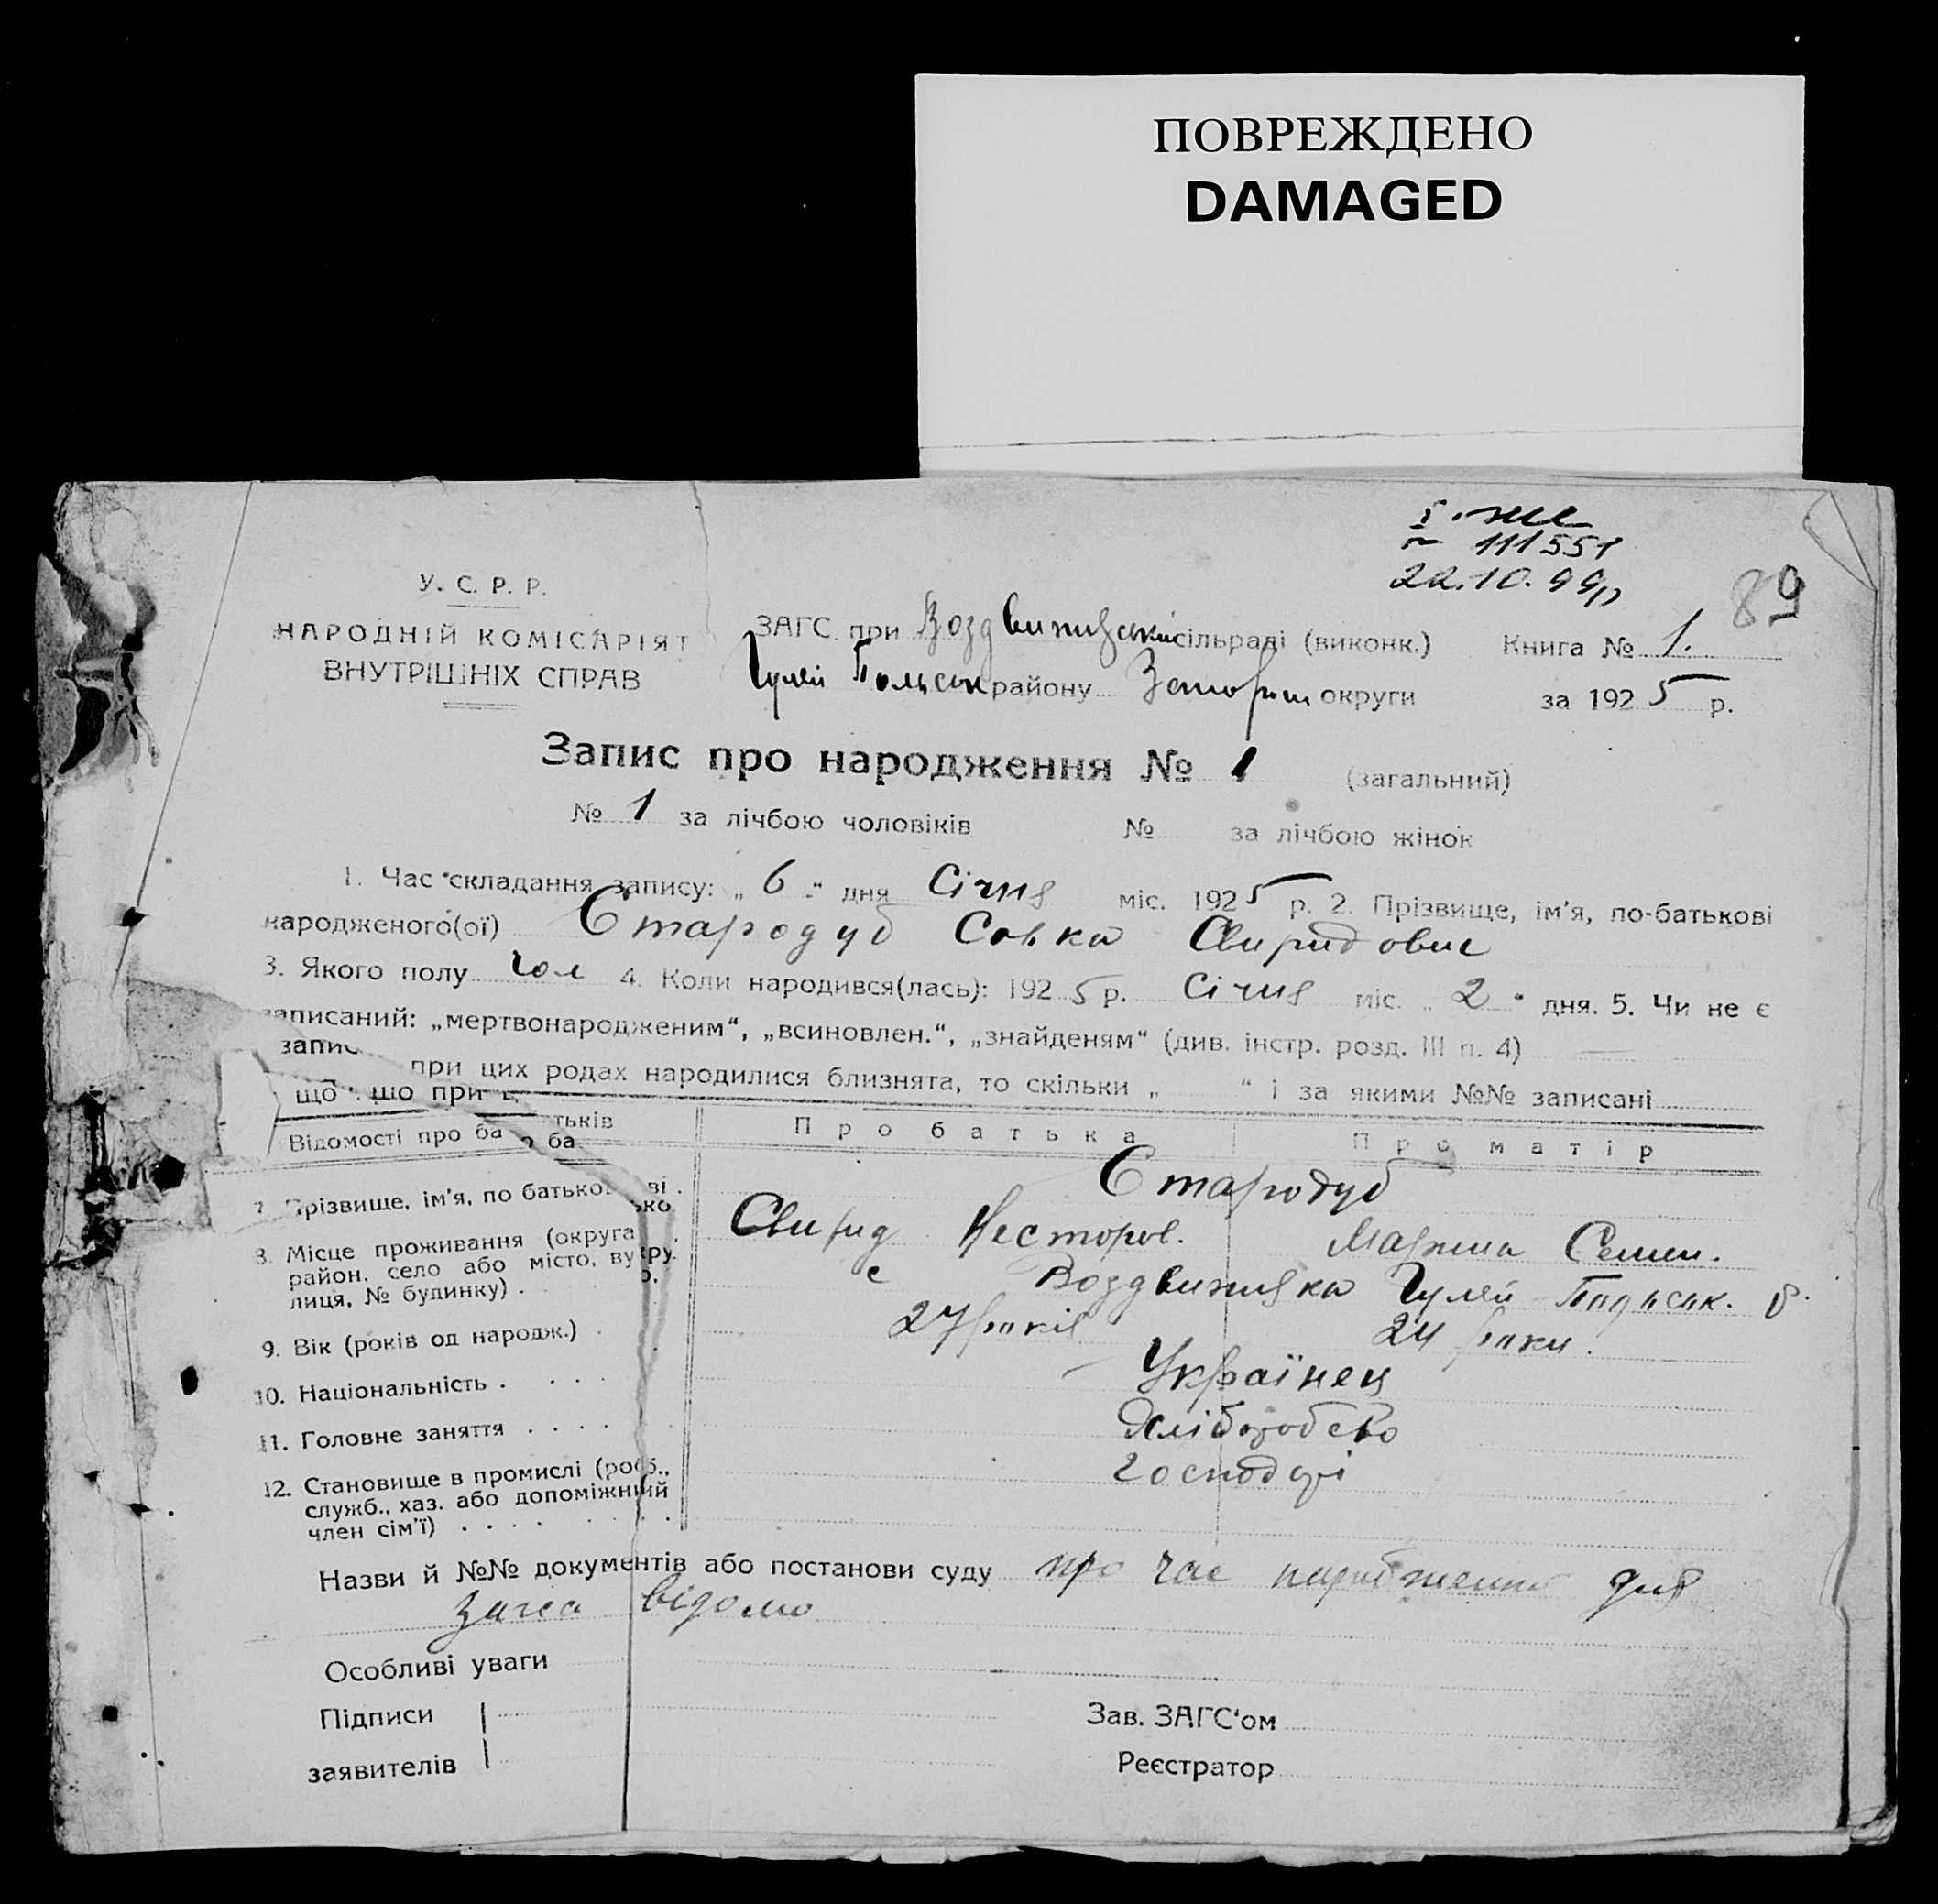 ПОВРЕЖДЕНО
DAMAGED
111551
22.10.99р
89
У. С. Р. Р.
НАРОДНІЙ КОМІСАРІЯТ
ВНУТРІШНІХ СПРАВ
ЗАГС при Воздвижівській сільраді (виконк.) Книга № 1.
Гуляй Польськ району Запоріж округи за 1925 р.
Запис про народження № 1 (загальний)
№ 1 за лічбою чоловіків № за лічбою жінок
1. Час складання запису: „ 6 “ дня Січня міс. 1925 р. 2. Прізвище, ім’я, по-батькові
народженого(ої) Стародуб Совка Свиридович
3. Якого полу чол 4. Коли народився(лась): 1925 р. Січня міс. „ 2 “ дня. 5. Чи не є
записаний: „мертвонародженим“, „всиновлен.“, „знайденям“ (див. інстр. розд. III п. 4)
при цих родах народилися близнята, то скільки „ “ і за якими №№ записані
Відомості про ба тьків Про батька Про матір
Стародуб
7. Прізвище, ім’я, по батькові . Свирид Несторов. Марина Семен.
8. Місце проживання (округа, район, село або місто, вулиця, № будинку) . с Воздвижівка Гуляй Польськ. р.
9. Вік (років од народж.) . 27 років 24 роки.
10. Національність . . . . Українец
11. Головне заняття . . . . Хліборобство
12. Становище в промислі (роб., служб., хаз. або допоміжний член сім’ї) . . . . Господарі
Назви й №№ документів або постанови суду про час народження для
загса відомо
Особливі уваги
Підписи
заявителів
Зав. ЗАГС‘ом
Реєстратор